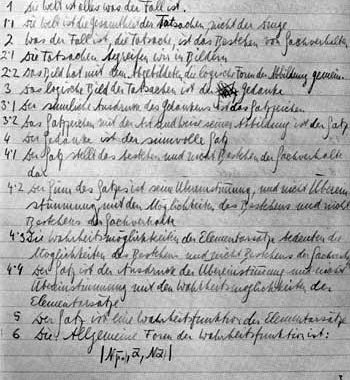 1 Die Welt ist alles was der Fall ist.
1·1 Die Welt ist die Gesamtheit der Tatsachen, nicht der Dinge
2 Was der Fall ist, die Tatsache, ist das Bestehen von Sachverhalten
2·1 Die Tatsachen begreifen wir in Bildern
2·2 Das Bild hat mit dem Abgebildeten die logische Form der Abbildung gemein.
3 Das logische Bild der Tatsachen ist der Gedanke
3·1 Der sinnliche Ausdruck des Gedankens ist das Satzzeichen
3·2 Das Satzzeichen mit der Art und Weise seiner Abbildung ist der Satz
4 Der Gedanke ist der sinnvolle Satz
4·1 Der Satz stellt das Bestehen und nicht Bestehen der Sachverhalte
dar
4·2 Der Sinn des Satzes ist seine Übereinstimmung, und nicht Überein-
stimmung mit den Möglichkeiten des Bestehens und nicht
Bestehens der Sachverhalte
4·3 Die Wahrheitsmöglichkeiten der Elementarsätze bedeuten die
Möglichkeiten des Bestehens und nicht Bestehens der Sachverhalte
4·4 Der Satz ist der Ausdruck der Übereinstimmung und nicht
Übereinstimmung mit den Wahrheitsmöglichkeiten der
Elementarsätze
5 Der Satz ist eine Wahrheitsfunktion der Elementarsätze
6 Die Allgemeine Form der Wahrheitsfunktion ist: